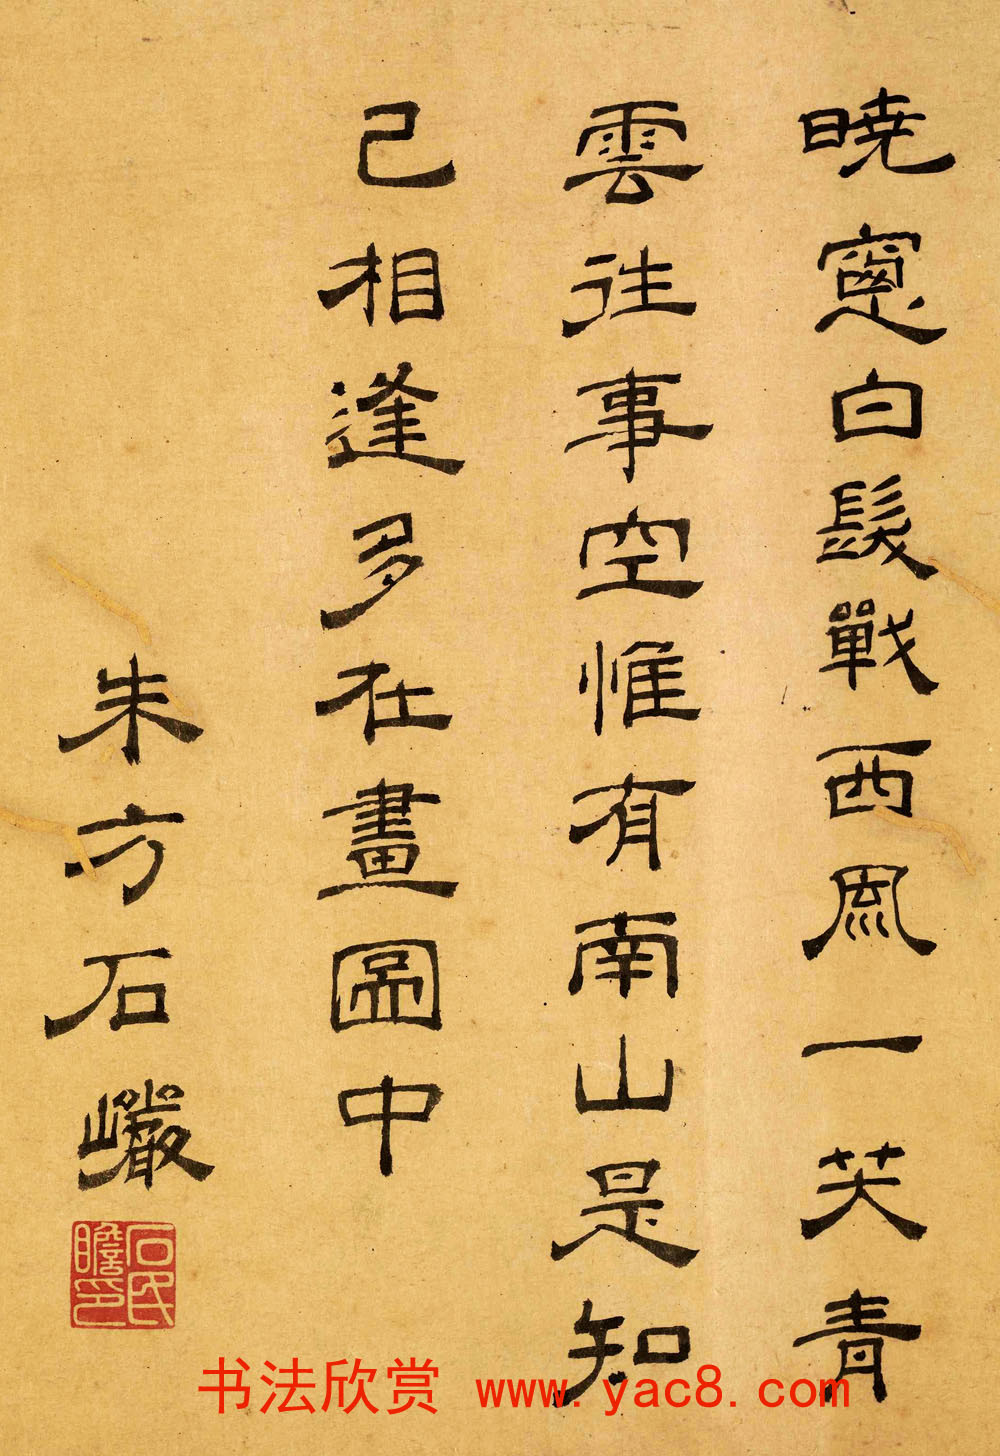 曉窻白髮戰西風一芺青
雲往事空惟有南山是知
己相逢多在畫圖中
朱方石巗
石氏瞻印
书法欣赏 www.yac8.com